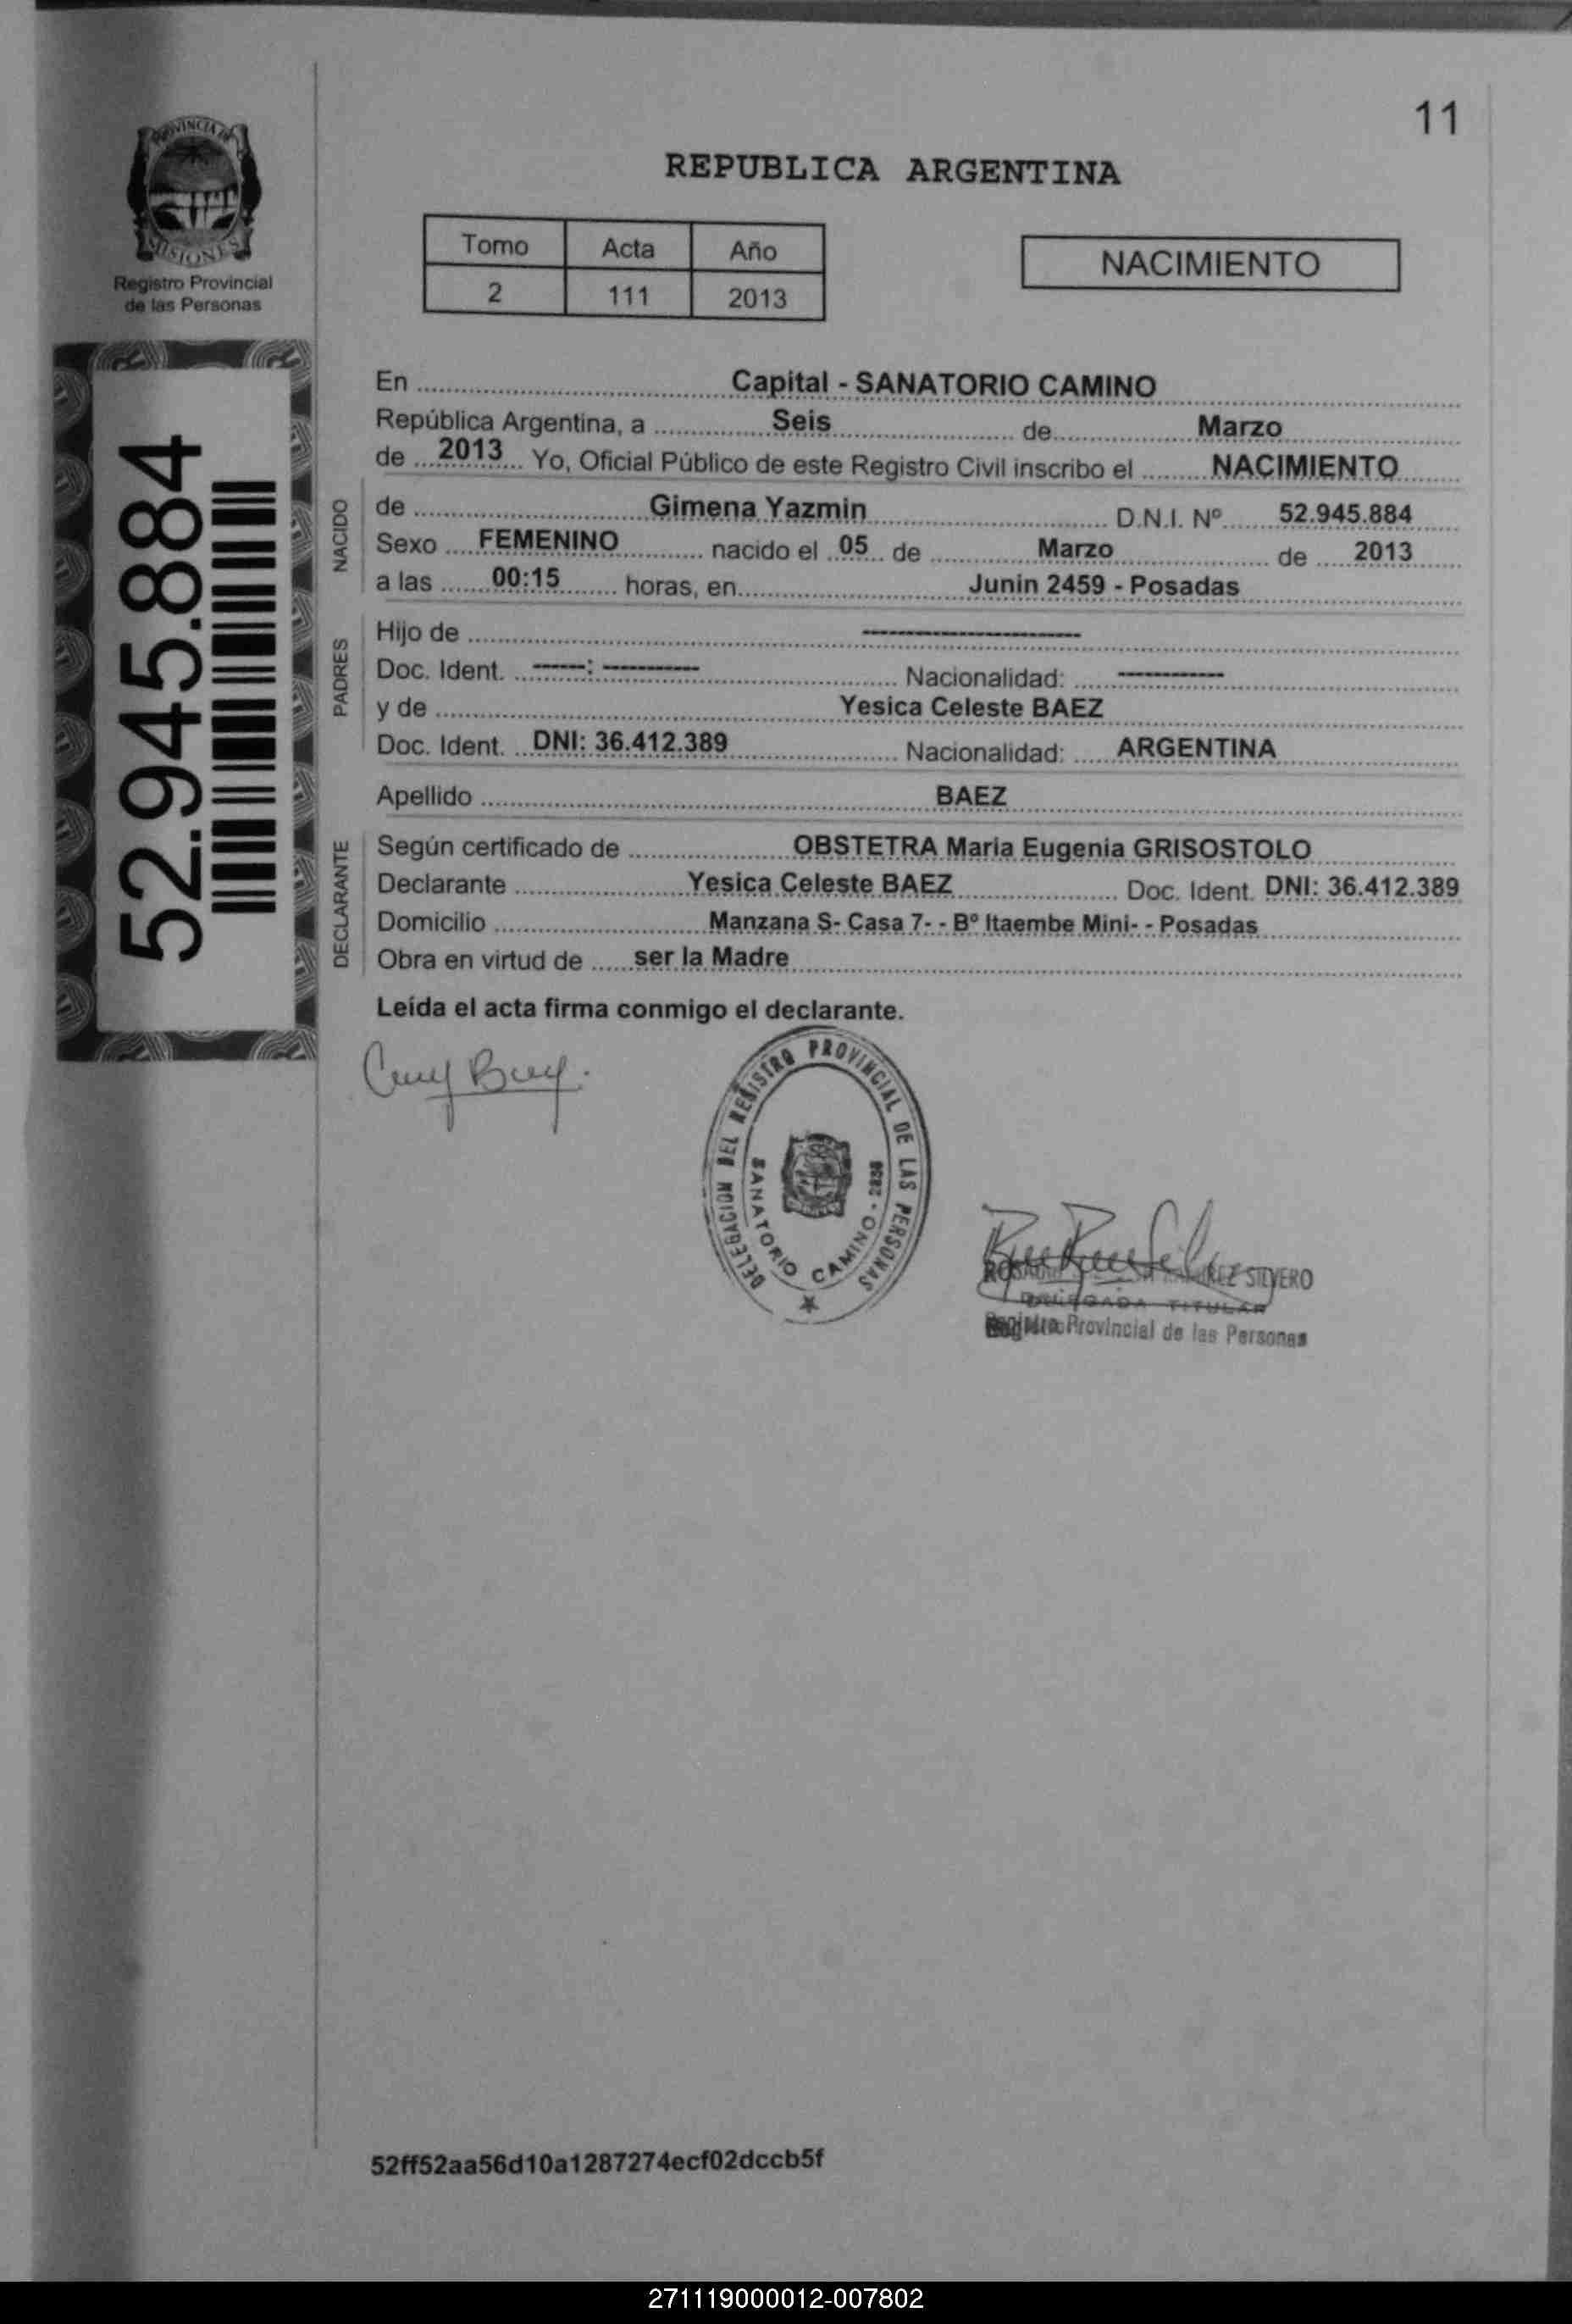 11
PROVINCIA DE
MISIONES
Registro Provincial
de las Personas
REPUBLICA ARGENTINA
Tomo Acta Año
2 111 2013
NACIMIENTO
52.945.884
En Capital - SANATORIO CAMINO
República Argentina, a Seis de Marzo
de 2013 Yo, Oficial Público de este Registro Civil inscribo el NACIMIENTO
NACIDO
de Gimena Yazmin D.N.I. Nº 52.945.884
Sexo FEMENINO nacido el 05 de Marzo de 2013
a las 00:15 horas, en Junin 2459 - Posadas
PADRES
Hijo de --------------------
Doc. Ident. -----: --------- Nacionalidad: ----------
y de Yesica Celeste BAEZ
Doc. Ident. DNI: 36.412.389 Nacionalidad: ARGENTINA
Apellido BAEZ
DECLARANTE
Según certificado de OBSTETRA Maria Eugenia GRISOSTOLO
Declarante Yesica Celeste BAEZ Doc. Ident. DNI: 36.412.389
Domicilio Manzana S- Casa 7- - Bº Itaembe Mini- - Posadas
Obra en virtud de ser la Madre
Leída el acta firma conmigo el declarante.
DELEGACION DEL REGISTRO PROVINCIAL DE LAS PERSONAS
SANATORIO CAMINO -
SILVERO
DELEGADA TITULAR
Provincial de las Personas
52ff52aa56d10a1287274ecf02dccb5f
271119000012-007802